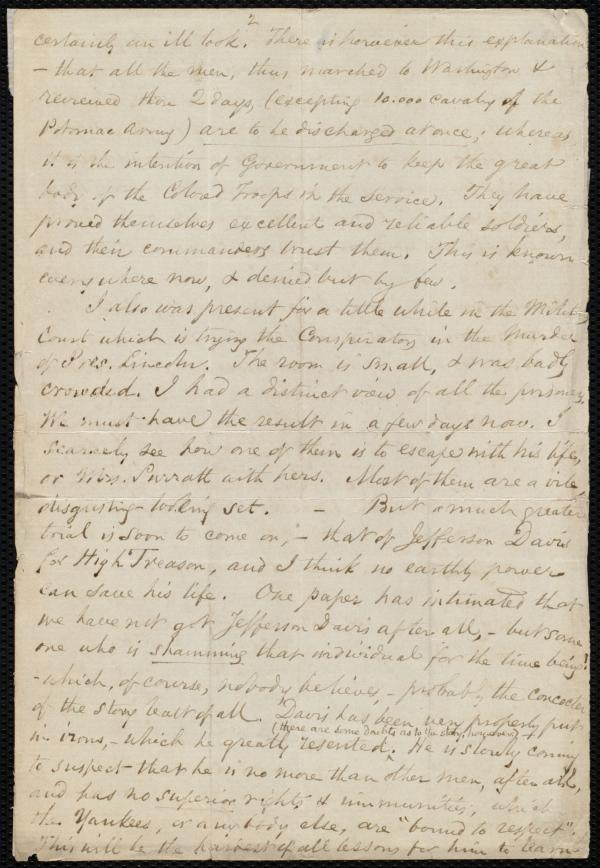 2
certainly an ill look. There is however this explanation
- that all the men, thus marched to Washington &
reviewed thon 2 days, (excepting 10.000 cavalry of the
Potomac Army) are to be discharged at once; whereas
it is the intention of Government to keep the great
body of the Colored Troops in the service. They have
proved themselves excellent and reliable soldiers,
and their commanders trust them. This is known
everywhere now, & denied but by few.
I also was present for a little while in the Milit.
Court which is trying the Conspirators in the Murder
of Pres. Lincoln. The room is small, & was badly
crowded. I had a distinct view of all the prisoners.
We must have the result in a few days now. I
scarcely see how one of them is to escape with his life,
or Mrs. Surratt with hers. Most of them are a vile,
disgusting-looking set. - But a much greater
trial is soon to come on, - that of Jefferson Davis
for High Treason, and I think no earthly power
can save his life. One paper has intimated that
we have not got Jefferson Davis after all, - but some
one who is shamming that individual for the time being!
- which, of course, nobody believes, - probably the concocter
of the story least of all. Davis has been very properly put
(there are some doubts as to the story, however) -
in irons, - which he greatly resented. He is slowly coming
to suspect that he is no more than other men, after all,
and has no superior rights & immunities, which
the Yankees, or anybody else, are "bound to respect".
This will be the hardest of all lessons for him to learn